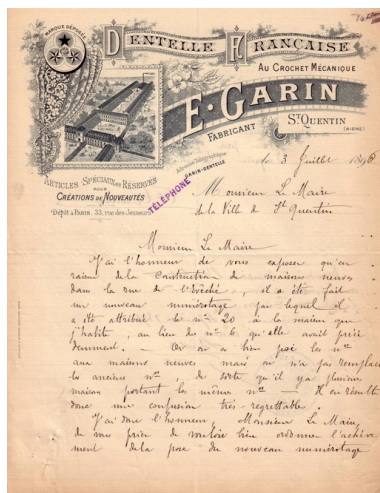 MARQUE DÉPOSÉE
DENTELLE FRANÇAISE
AU CROCHET MÉCANIQUE
E. GARIN
FABRICANT
ST QUENTIN
(AISNE)
Adresse Télégraphique
GARIN-DENTELLE
TÉLÉPHONE
ARTICLES SPÉCIAUX ET RÉSERVÉS
POUR
CRÉATIONS DE NOUVEAUTÉS
Dépôt à PARIS, 33, rue des Jeuneurs
le 3 Juillet 1896
Monsieur Le Maire
de la Ville de St Quentin
Monsieur Le Maire
J'ai l'honneur de vous exposer qu'en
raison de la construction de maisons neuves
dans la rue de l'Évêché, il a été fait
un nouveau numérotage, par lequel il
a été attribué le no 20 à la maison que
j'habite, au lieu du no 6 qu'elle avait précé
demment. Or on a bien posé les nos
aux maisons neuves mais on n'a pas remplacé
les anciens nos, de sorte qu'il y a plusieurs
maisons portant les mêmes nos — Il en résulte
donc une confusion très-regrettable.
J'ai donc l'honneur, Monsieur Le Maire,
de vous prier de vouloir bien ordonner l'achève
ment de la pose du nouveau numérotage